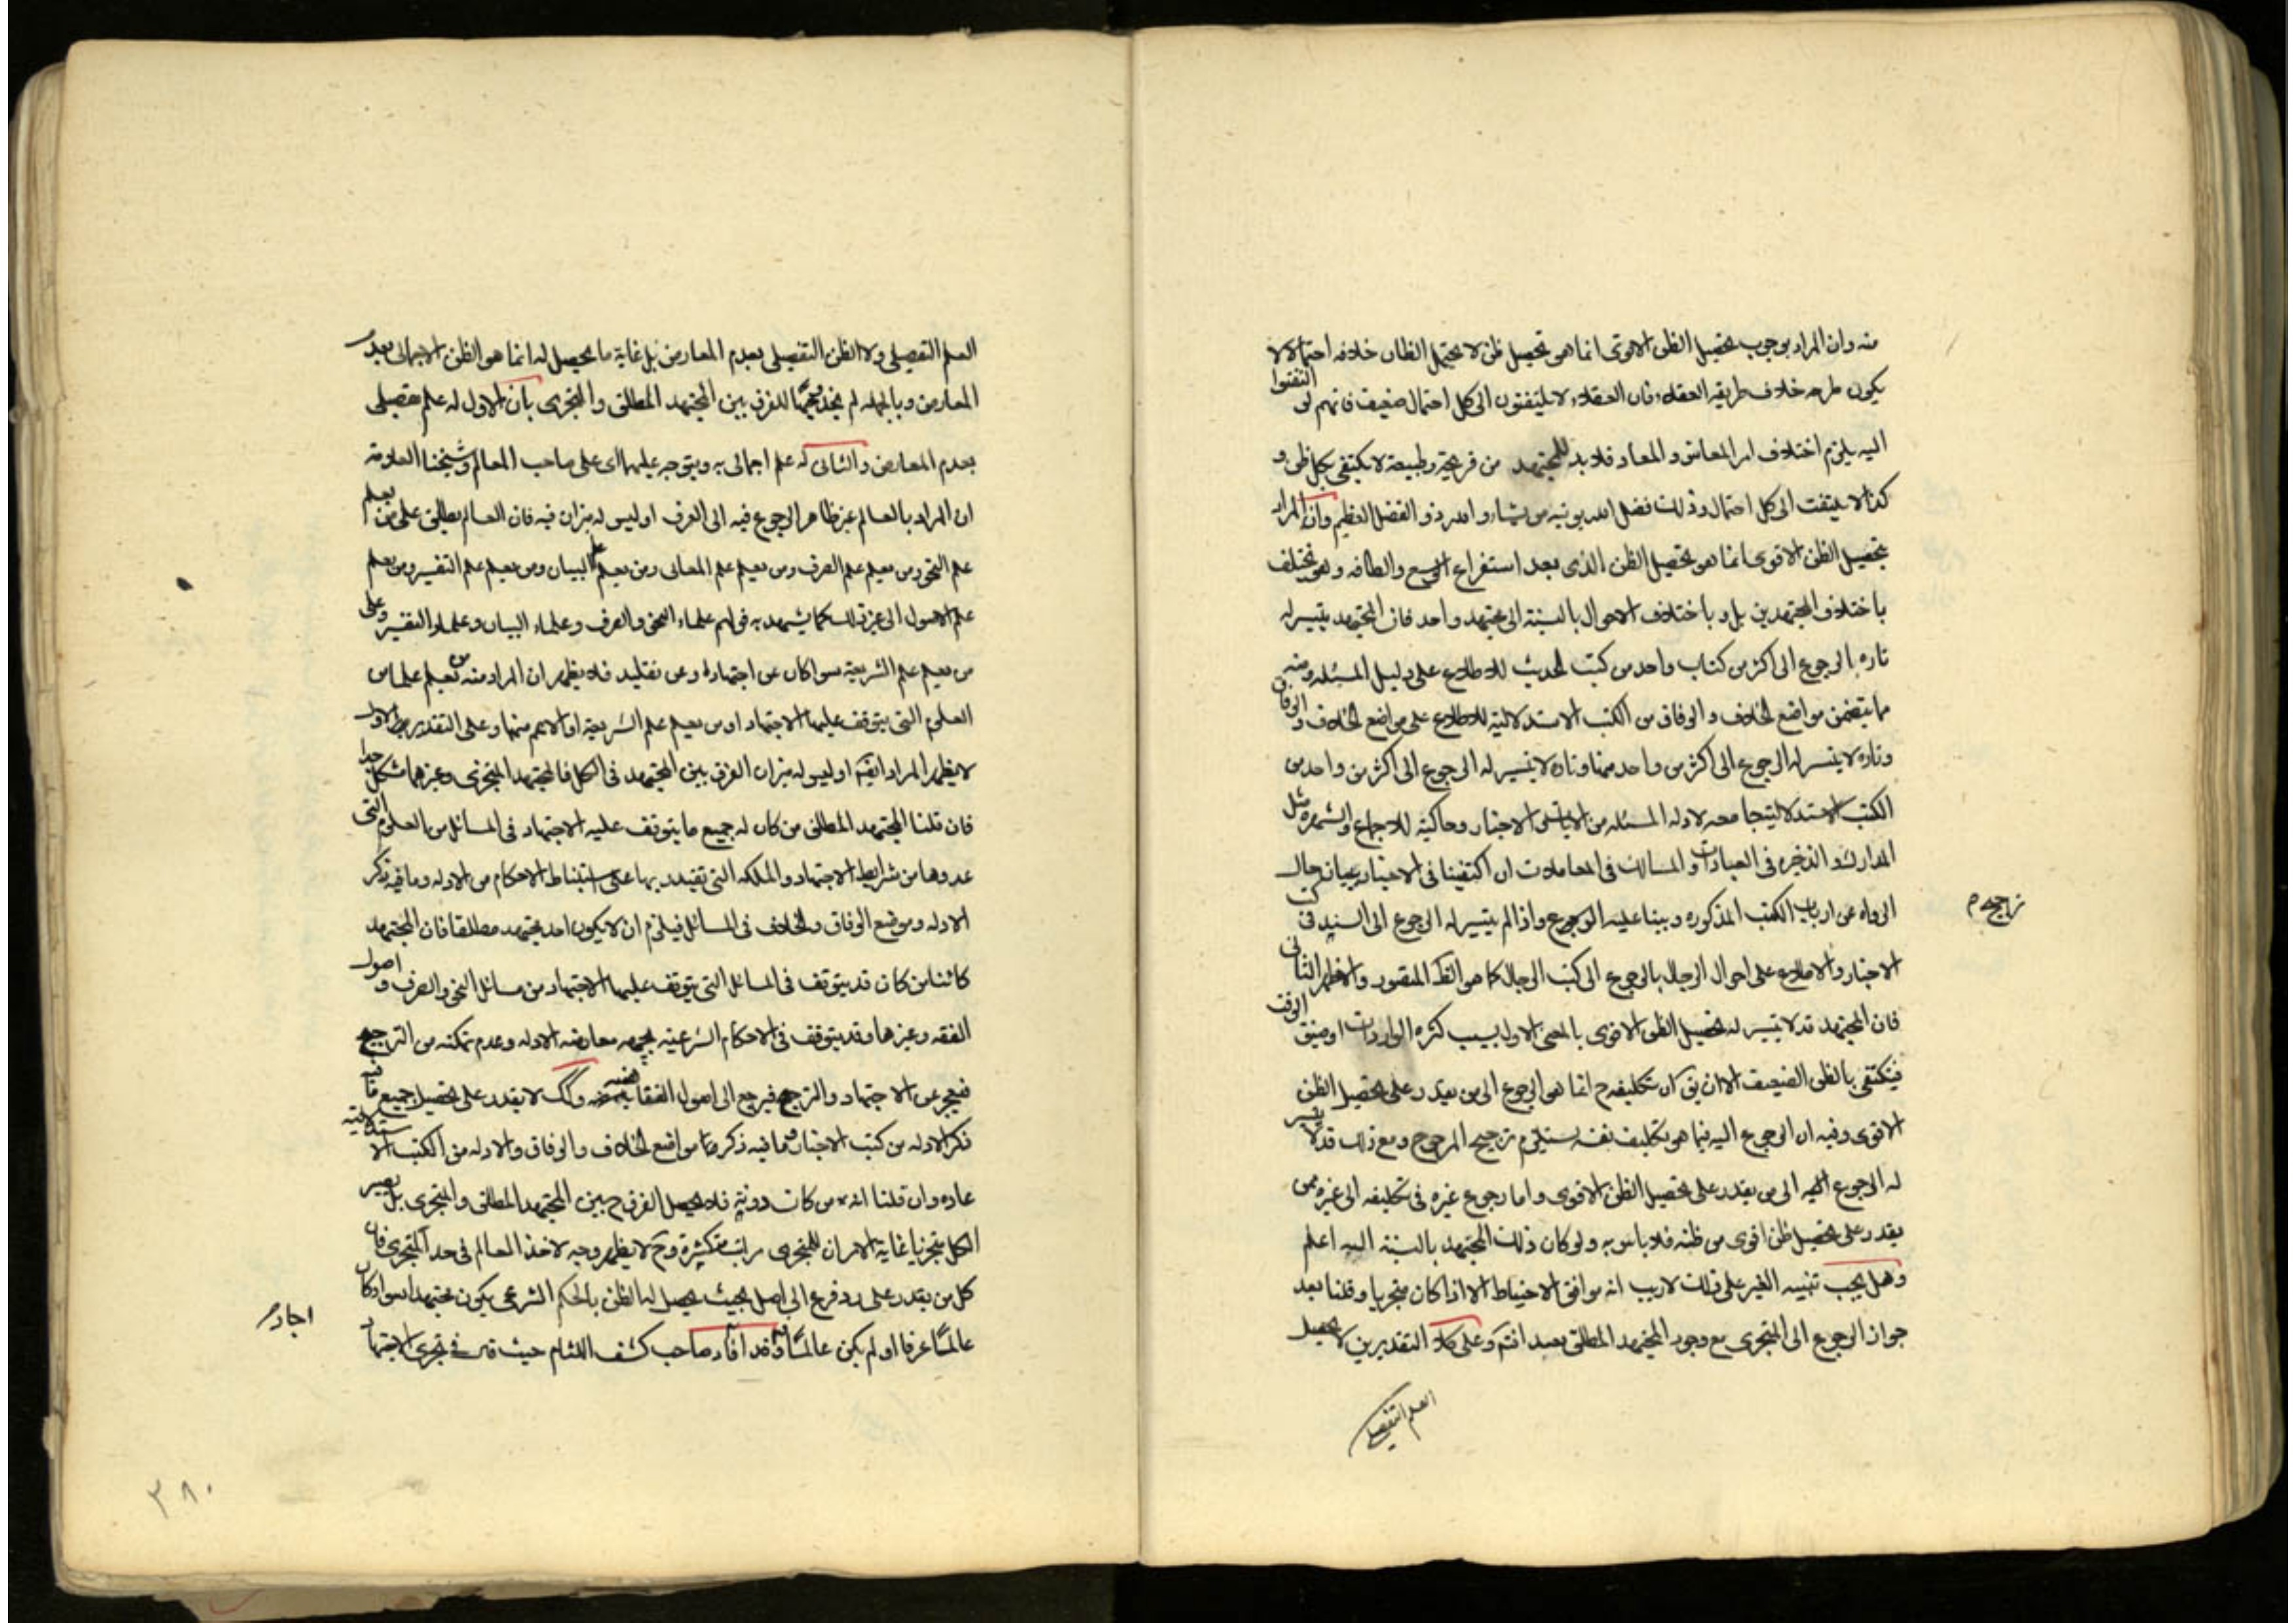 منه وان المراد بوجوب تحصيل الظن الاقوى انما هو تحصيل ظن لا يحتمل الظان خلافه احتمالا لا
يكون طرحه خلاف طريقه العقلاء فان العقلاء لا يلتفتون الى كل احتمال ضعيف فانهم لو التفتوا
اليه يلزم اختلاف امر المعاش و المعاد فلا بد للمجتهد من قريحة وطبيعة لا يكتفى بكل ظن و
كذا لا يلتفت الى كل احتمال وذلك فضل الله يوتيه من يشاء والله ذو الفضل العظيم وان المراد
بتحصيل الظن الاقوى انما هو تحصيل الظن الذى بعد استفراغ الوسع والطاقه وهو يختلف
باختلاف المجتهدين بل و باختلاف الاحوال بالنسبة الى مجتهد واحد فان المجتهد يتيسر له
تاره الرجوع الى اكثر من كتاب واحد من كتب الحديث للاطلاع على دليل المسئله ومنه
ما يتضمن مواضع الخلاف و الوفاق من الكتب الاستدلالية للاطلاع على مواضع الخلاف و الوفاق
وتارة لا يتيسر له الرجوع الى اكثر من واحد منها وتارة لا يتيسر له الرجوع الى اكثر من واحد من
الكتب الاستدلالية جامعه لادله المسئله من الايات و الاخبار وحاكية للاجماع و الشهره مثل
المدارك و الذخيره فى العبادات و المسالك فى المعاملات ان اكتفينا فى الاخبار ببيان حال
الرواه من ارباب الكتب المذكوره و بينا عليه الرجوع واذا لم يتيسر له الرجوع الى السند فى كتب
ترجيح م
الاخبار والاطلاع على احوال الرجال بالرجوع الى كتب الرجال كما هو الظ المنصور والاظهر الثانى
فان المجتهد قد لا يتيسر له تحصيل الظن الاقوى بالمعنى الاول بسبب كثره الواردات او ضيق الوقت
فيكتفى بالظن الضعيف الا ان يق ان تكليفه ح انما هو الرجوع الى من يقدر على تحصيل الظن
الاقوى وفيه ان الرجوع اليه فيما هو تكليف نفسه يستلزم ترجيح المرجوح ومع ذلك قد لا يتيسر
له الرجوع اليه الى من يقدر على تحصيل الظن الاقوى واما رجوع غيره فى تكليفه الى غيره ممن
يقدر على تحصيل ظن اقوى من ظنه فلا باس به ولو كان ذلك المجتهد بالنسبة اليه اعلم
وهل يجب تنبيه الغير على ذلك لا ريب انه موافق الاحتياط الا اذا كان متجزيا و قلنا بعد
جواز الرجوع الى المتجزى مع وجود المجتهد المطلق بعيد انتهى وعلى كلا التقديرين لا يحصل
العلم التفصيلى
العلم التفصيلى ولا الظن التفصيلى بعدم المعارض بل غاية ما يحصل له انما هو الظن الاجمالى بعدم
المعارض و بالجمله لم نجد وجها للفرق بين المجتهد المطلق و المتجزى بان الاول له علم تفصيلى
بعدم المعارض و الثانى له علم اجمالى به ويتوجه عليهما اى على صاحب المعالم و شيخنا العلامه
ان المراد بالعالم غير ظاهر الرجوع فيه الى العرف اوليس له ميزان فيه فان العالم يطلق على من يعلم
علم النحو ومن يعلم علم الصرف ومن يعلم علم المعانى ومن يعلم علم البيان ومن يعلم علم التفسير ومن يعلم
علم الاصول الى غير ذلك كما يشهد به قولهم علماء النحو والصرف و علماء البيان و علماء التفسير وعلى
من يعلم علم الشريعة سوا كان عن اجتهاد او عن تقليد فلا يظهر ان المراد منه من يعلم علما من
العلوم التى يتوقف عليها الاجتهاد او من يعلم علم الشريعة او الاعم منها و على التقدير الاول
لا يظهر المراد ايضا اوليس له ميزان الفرق بين المجتهد فى الكل فالمجتهد المتجزى وغيرهما مشكل جدا
فان قلنا المجتهد المطلق من كان له جميع ما يتوقف عليه الاجتهاد فى المسائل من العلوم التى
عدوها من شرايط الاجتهاد و الملكه التى تقتدر بها على استنباط الاحكام من الادله وما فيه ذكر
الادله وموضع الوفاق و الخلاف فى المسائل فيلزم ان لا يكون احد مجتهد مطلقا فان المجتهد
كائنا من كان قد يتوقف فى المسائل التى يتوقف عليها الاجتهاد من مسائل النحو والصرف و اصول
الفقه وغيرها وقد يتوقف فى الاحكام الشرعية معارضه الادله وعدم تمكنه من الترجيح
فيعجز عن الاجتهاد و الترجيح فيرجع الى اصول الفقا و كك لا يقدر على تحصيل جميع ما فيه
ذكر الادله من كتب الاخبار وما فيه ذكر مواضع الخلاف والوفاق والادله من الكتب الاستدلالية
عاده وان قلنا انه من كان دونه فلا يحصل الفرق ح بين المجتهد المطلق و المتجزى بل يصير
الكل متجزيا غاية الامر ان للمتجزى مراتب متكثرة وح لا يظهر وجه لاخذ العالم فى حد المتجزى فان
كل من يقدر على رد فرع الى اصل بحيث يحصل له الظن بالحكم الشرعى يكون مجتهدا سوا كان
عالما عرفا او لم يكن عالما وقد افاد صاحب كشف اللثام حيث قال فى تجزى الاجتهاد
اجاد م
٣٨٠